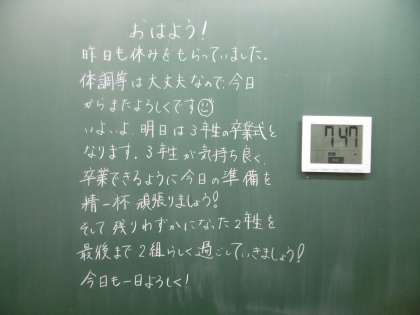 おはよう!
昨日も休みをもらっていました。
体調等は大丈夫なので、今日
からまたよろしくです☺
いよいよ、明日は3年生の卒業式と
なります。3年生が気持ち良く、
卒業できるように今日の準備を
精一杯頑張りましょう!
そして残りわずかになった2年生を
最後まで2組らしく過ごしていきましょう!
今日も一日よろしく!
7:47